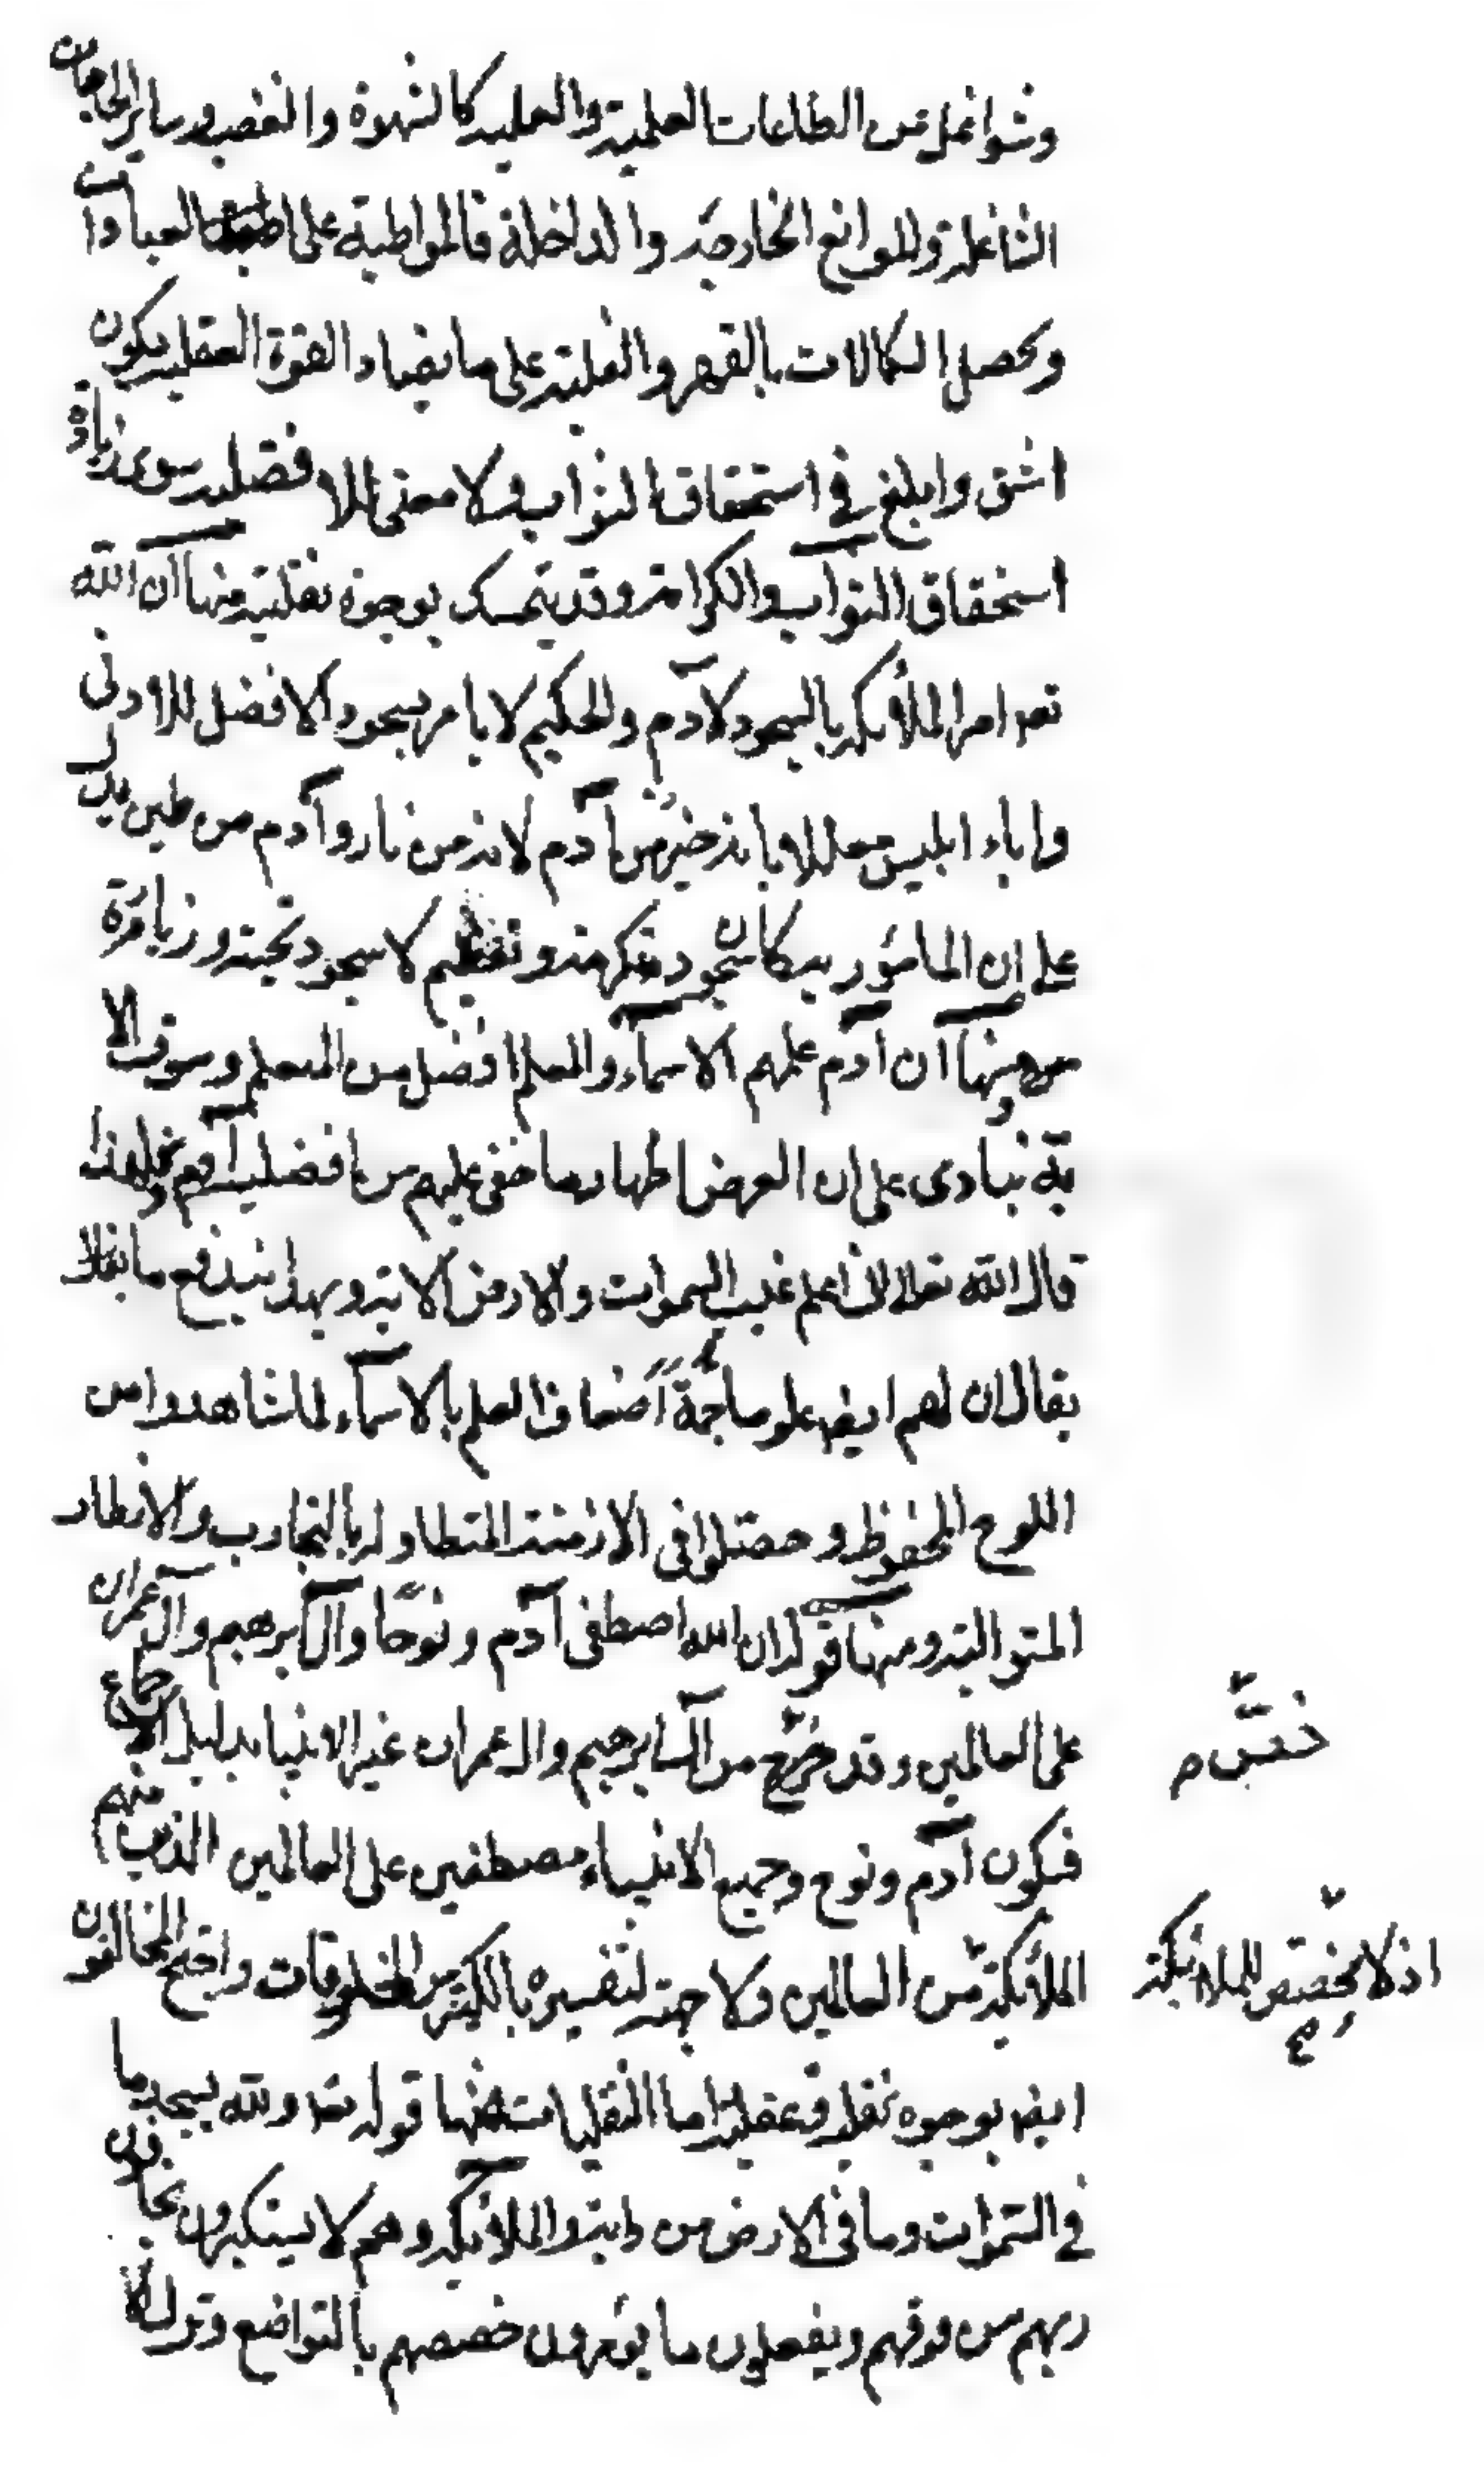 وشواغل عن الطاعات العلمية والعملية كالشهوة والغضب وسائر الحاجات
الشاغلة والموانع الخارجة والداخلة فالمواظبة على العبادات
وتحصيل الكمالات بالقهر والغلبة على ما يضاد القوة العقلية يكون
اشق وابلغ في استحقاق الثواب ولا معنى للافضلية سوى زيادة
استحقاق الثواب والكرامة وقد يتمسك بوجوه نقلية منها ان الله
تعه امر الملائكة بالسجود لآدم والحكيم لا يامر بسجود الافضل للادنى
واباء ابليس معللا بانه خير من آدم لانه من نار وآدم من طين يدل
على ان المامور به كان سجود تكرمة وتعظيم لا سجود تحية وزيارة
ومنها ان آدم علمهم الاسماء والمعلم افضل من المتعلم وسوق الا
ية ينادى على ان الغرض اظهار ما خفى عليهم من افضلية آدم ولهذا
قال الله تعالى انى اعلم غيب السموات والارض الاية وبهذا يندفع ما
يقال ان لهم ايضا علوما جمة اضعاف العلم بالاسماء لما شاهدوا من
اللوح المحفوظ وحصلوا في الازمنة المتطاولة بالتجارب والانظار
المتوالية ومنها قوله ان الله اصطفى آدم ونوحًا وآل ابرهيم وآل عمران
على العالمين وقد خرج من آل ابرهيم وال عمران غير الانبياء بدليل الاجماع
فيكون آدم ونوح وجميع الانبياء مصطفين على العالمين الذين منهم
الملائكة من العالمين ولا جهة لتفسيره بالكثير من المخلوقات واحتج المخالفون
اذ لا مخصص للملائكة
ايضا بوجوه نقلية وعقلية اما النقليات فمنها قوله تعه ولله يسجد ما
في السموات وما في الارض من دابة والملائكة وهم لا يستكبرون يخافون
ربهم من فوقهم ويفعلون ما يؤمرون خصصهم بالتواضع وترك الا